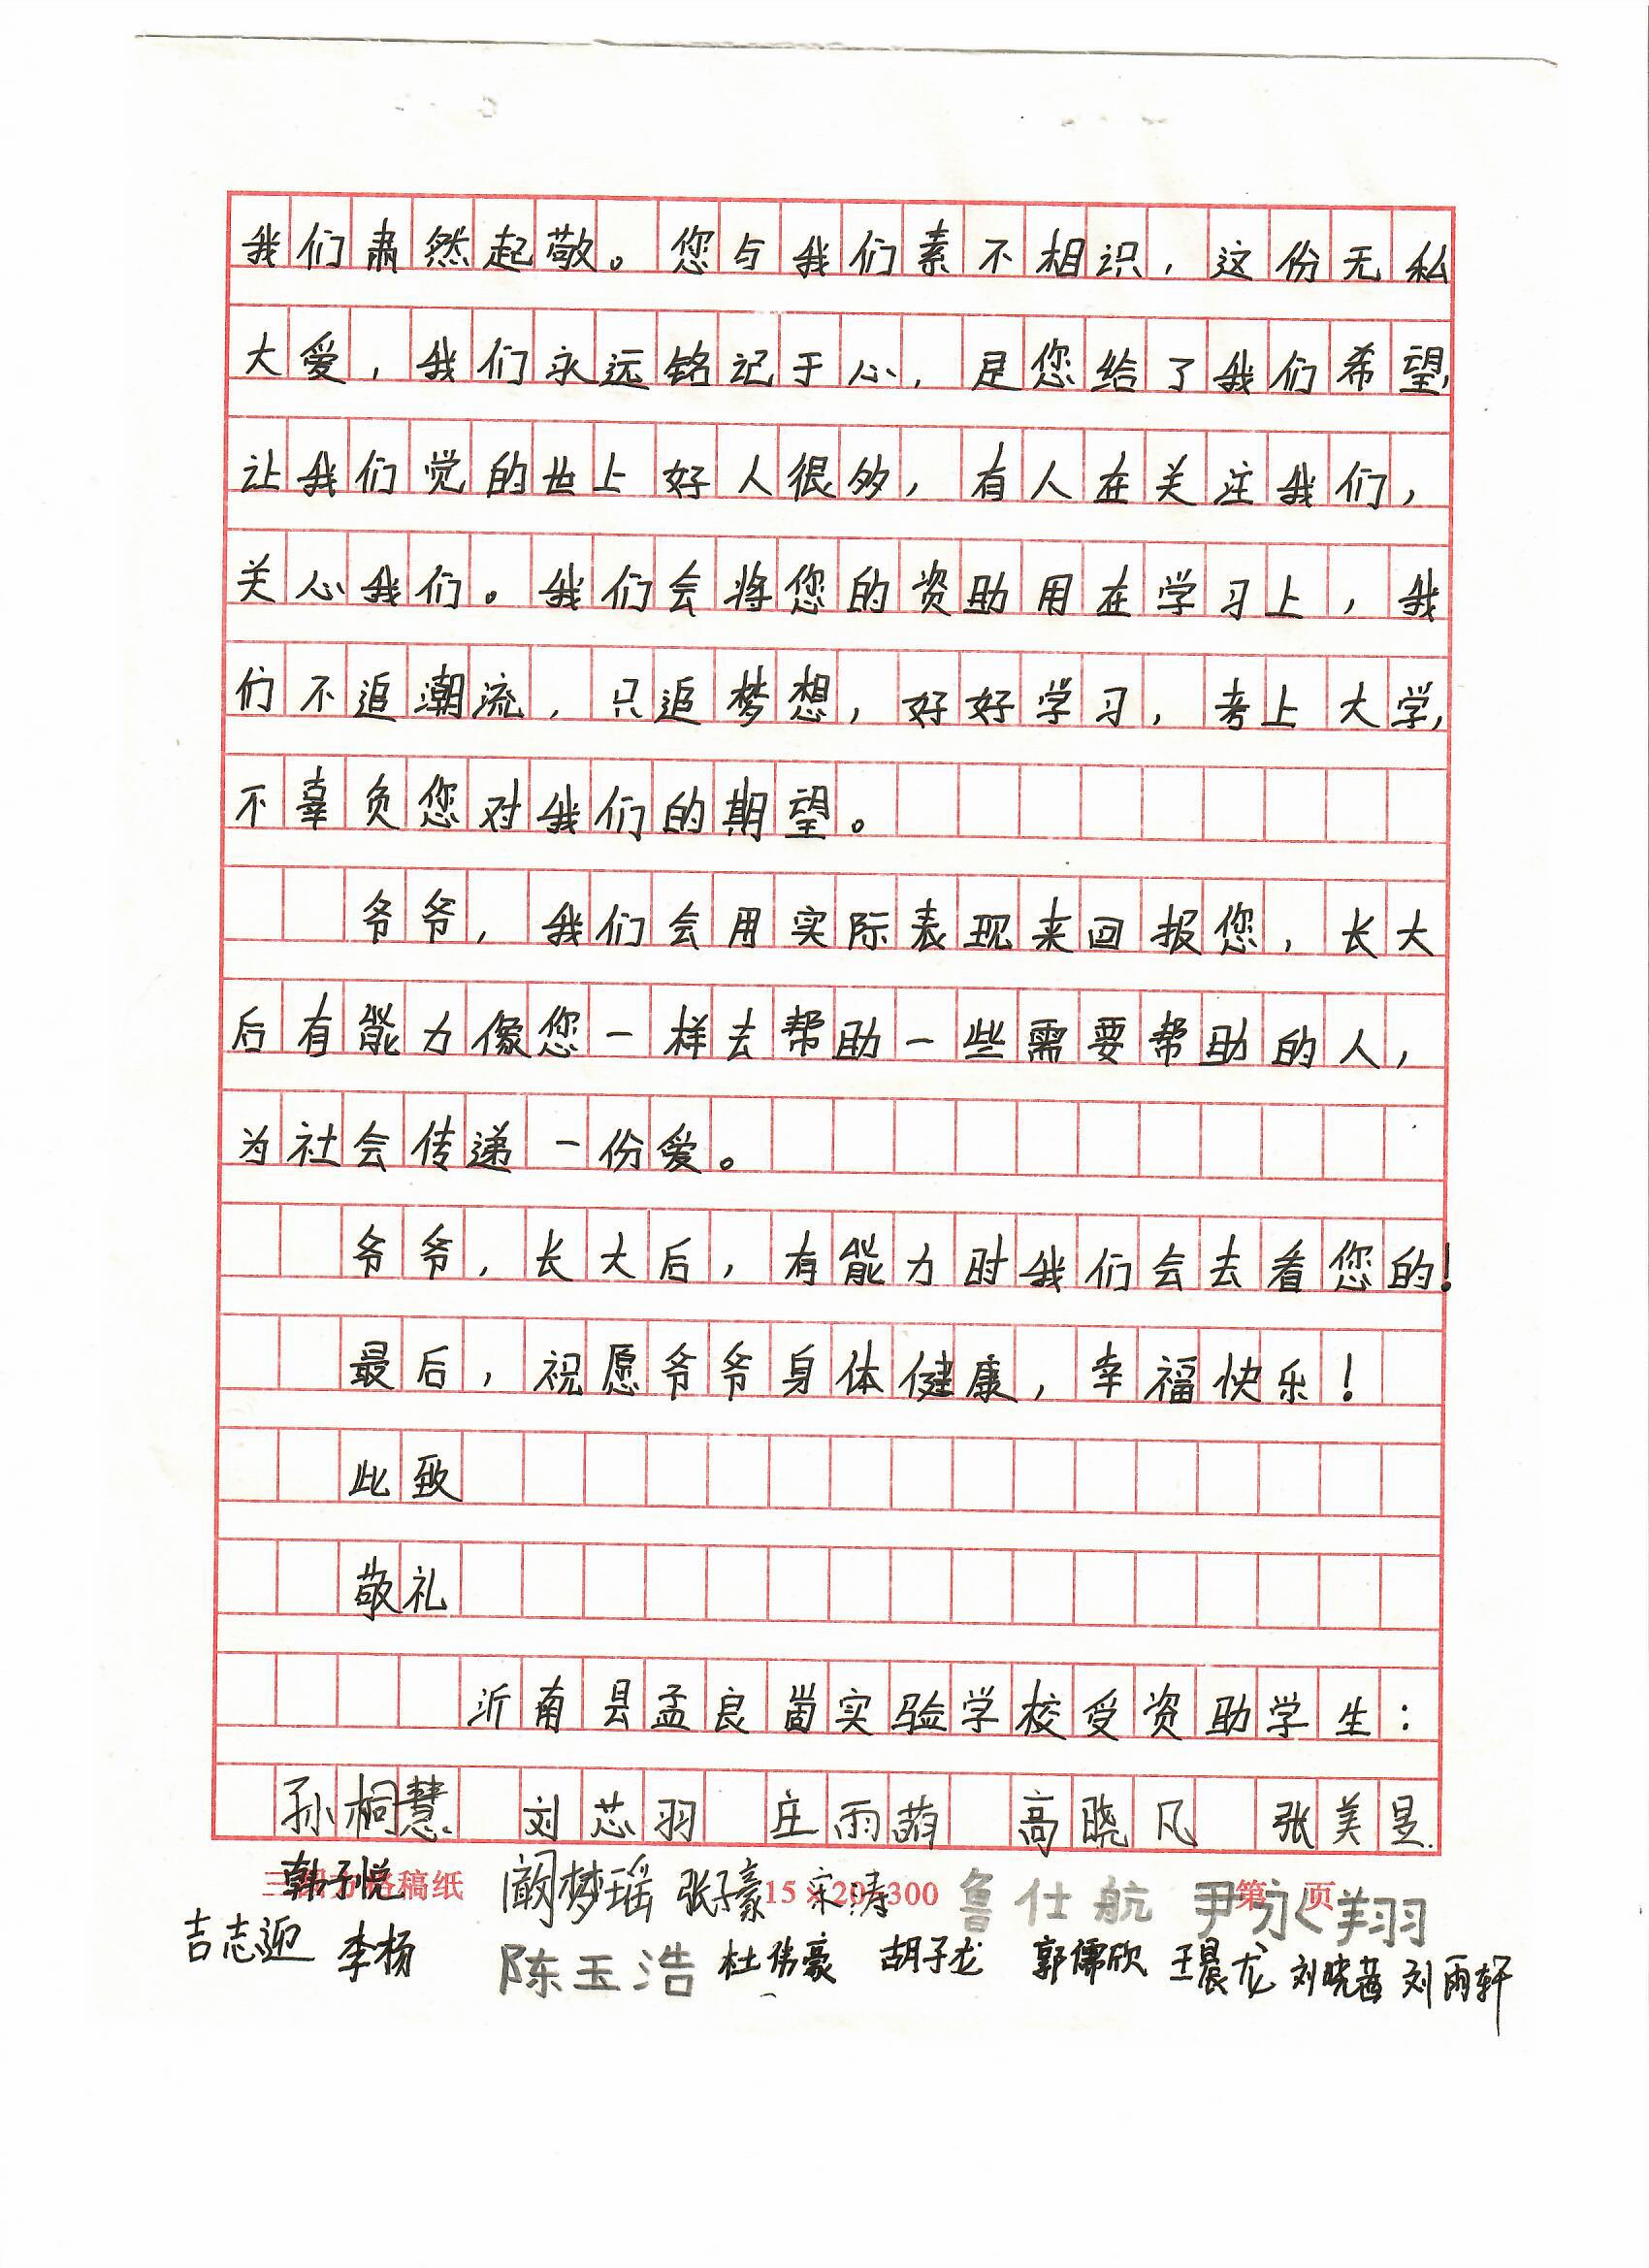 我们肃然起敬。您与我们素不相识，这份无私
大爱，我们永远铭记于心，是您给了我们希望，
让我们觉的世上好人很多，有人在关注我们，
关心我们。我们会将您的资助用在学习上，我
们不追潮流，只追梦想，好好学习，考上大学，
不辜负您对我们的期望。
爷爷，我们会用实际表现来回报您，长大
后有能力像您一样去帮助一些需要帮助的人，
为社会传递一份爱。
爷爷，长大后，有能力时我们会去看您的！
最后，祝愿爷爷身体健康，幸福快乐！
此致
敬礼
沂南县孟良崮实验学校受资助学生：
孙桐慧 刘芯羽 庄雨萌 高晓凡 张美昱
韩子悦 阚梦瑶 张子豪 宋涛 鲁仕航 尹永翔
稿纸 15×20=300 第 页
吉志迎 李杨 陈玉浩 杜伟豪 胡子龙 郭儒欣 王晨龙 刘晓茜 刘雨轩